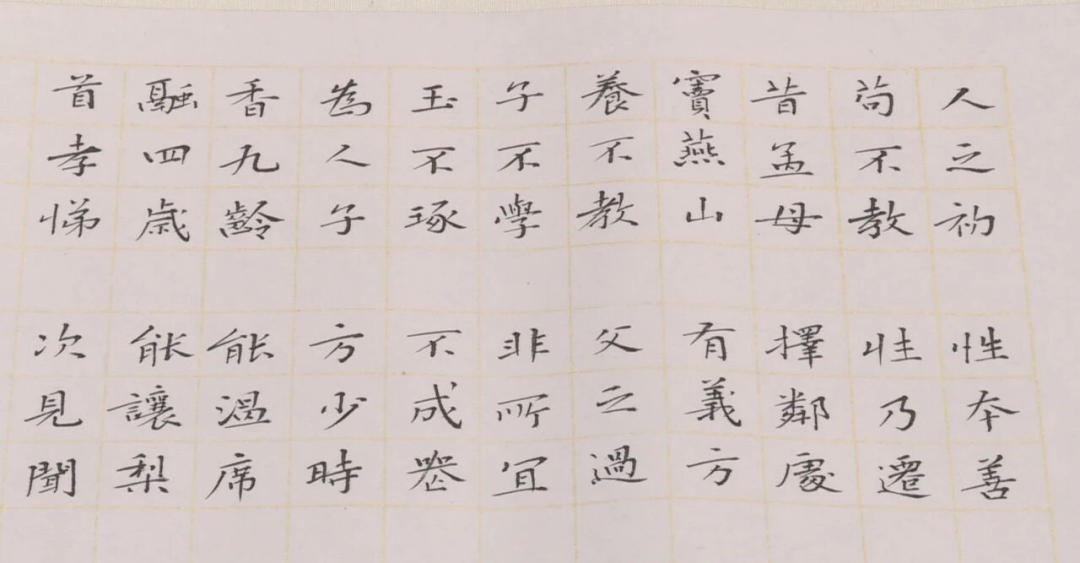 人之初 性本善
茍不教 性乃遷
昔孟母 擇鄰處
竇燕山 有義方
養不教 父之過
子不學 非所宜
玉不琢 不成器
為人子 方少時
香九齡 能溫席
融四歲 能讓梨
首孝悌 次見聞